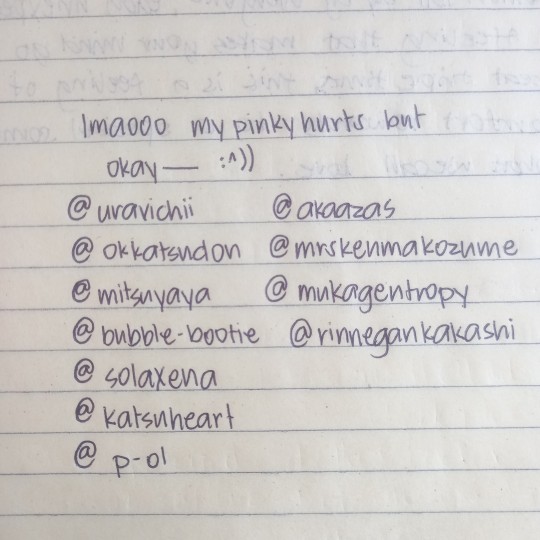 lmaooo my pinky hurts but
okay — :^))
@uravichii @akaazas
@okkatsudon @mrskenmakozume
@mitsuyaya @mukagentropy
@bubble-bootie @rinnegankakashi
@solaxena
@katsuheart
@p-ol